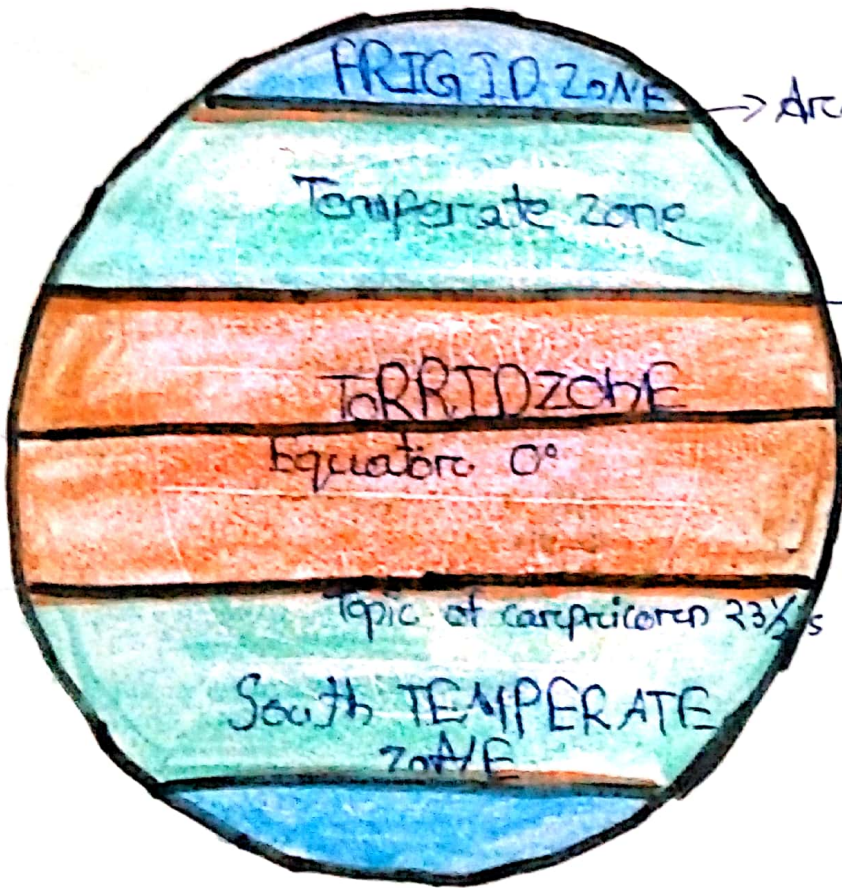 FRIGID ZONE
Temperate zone
ToRRID ZoNE
Equatorc 0°
Topic of carpricoren 23½ s
South TEMPERATE
zoNE